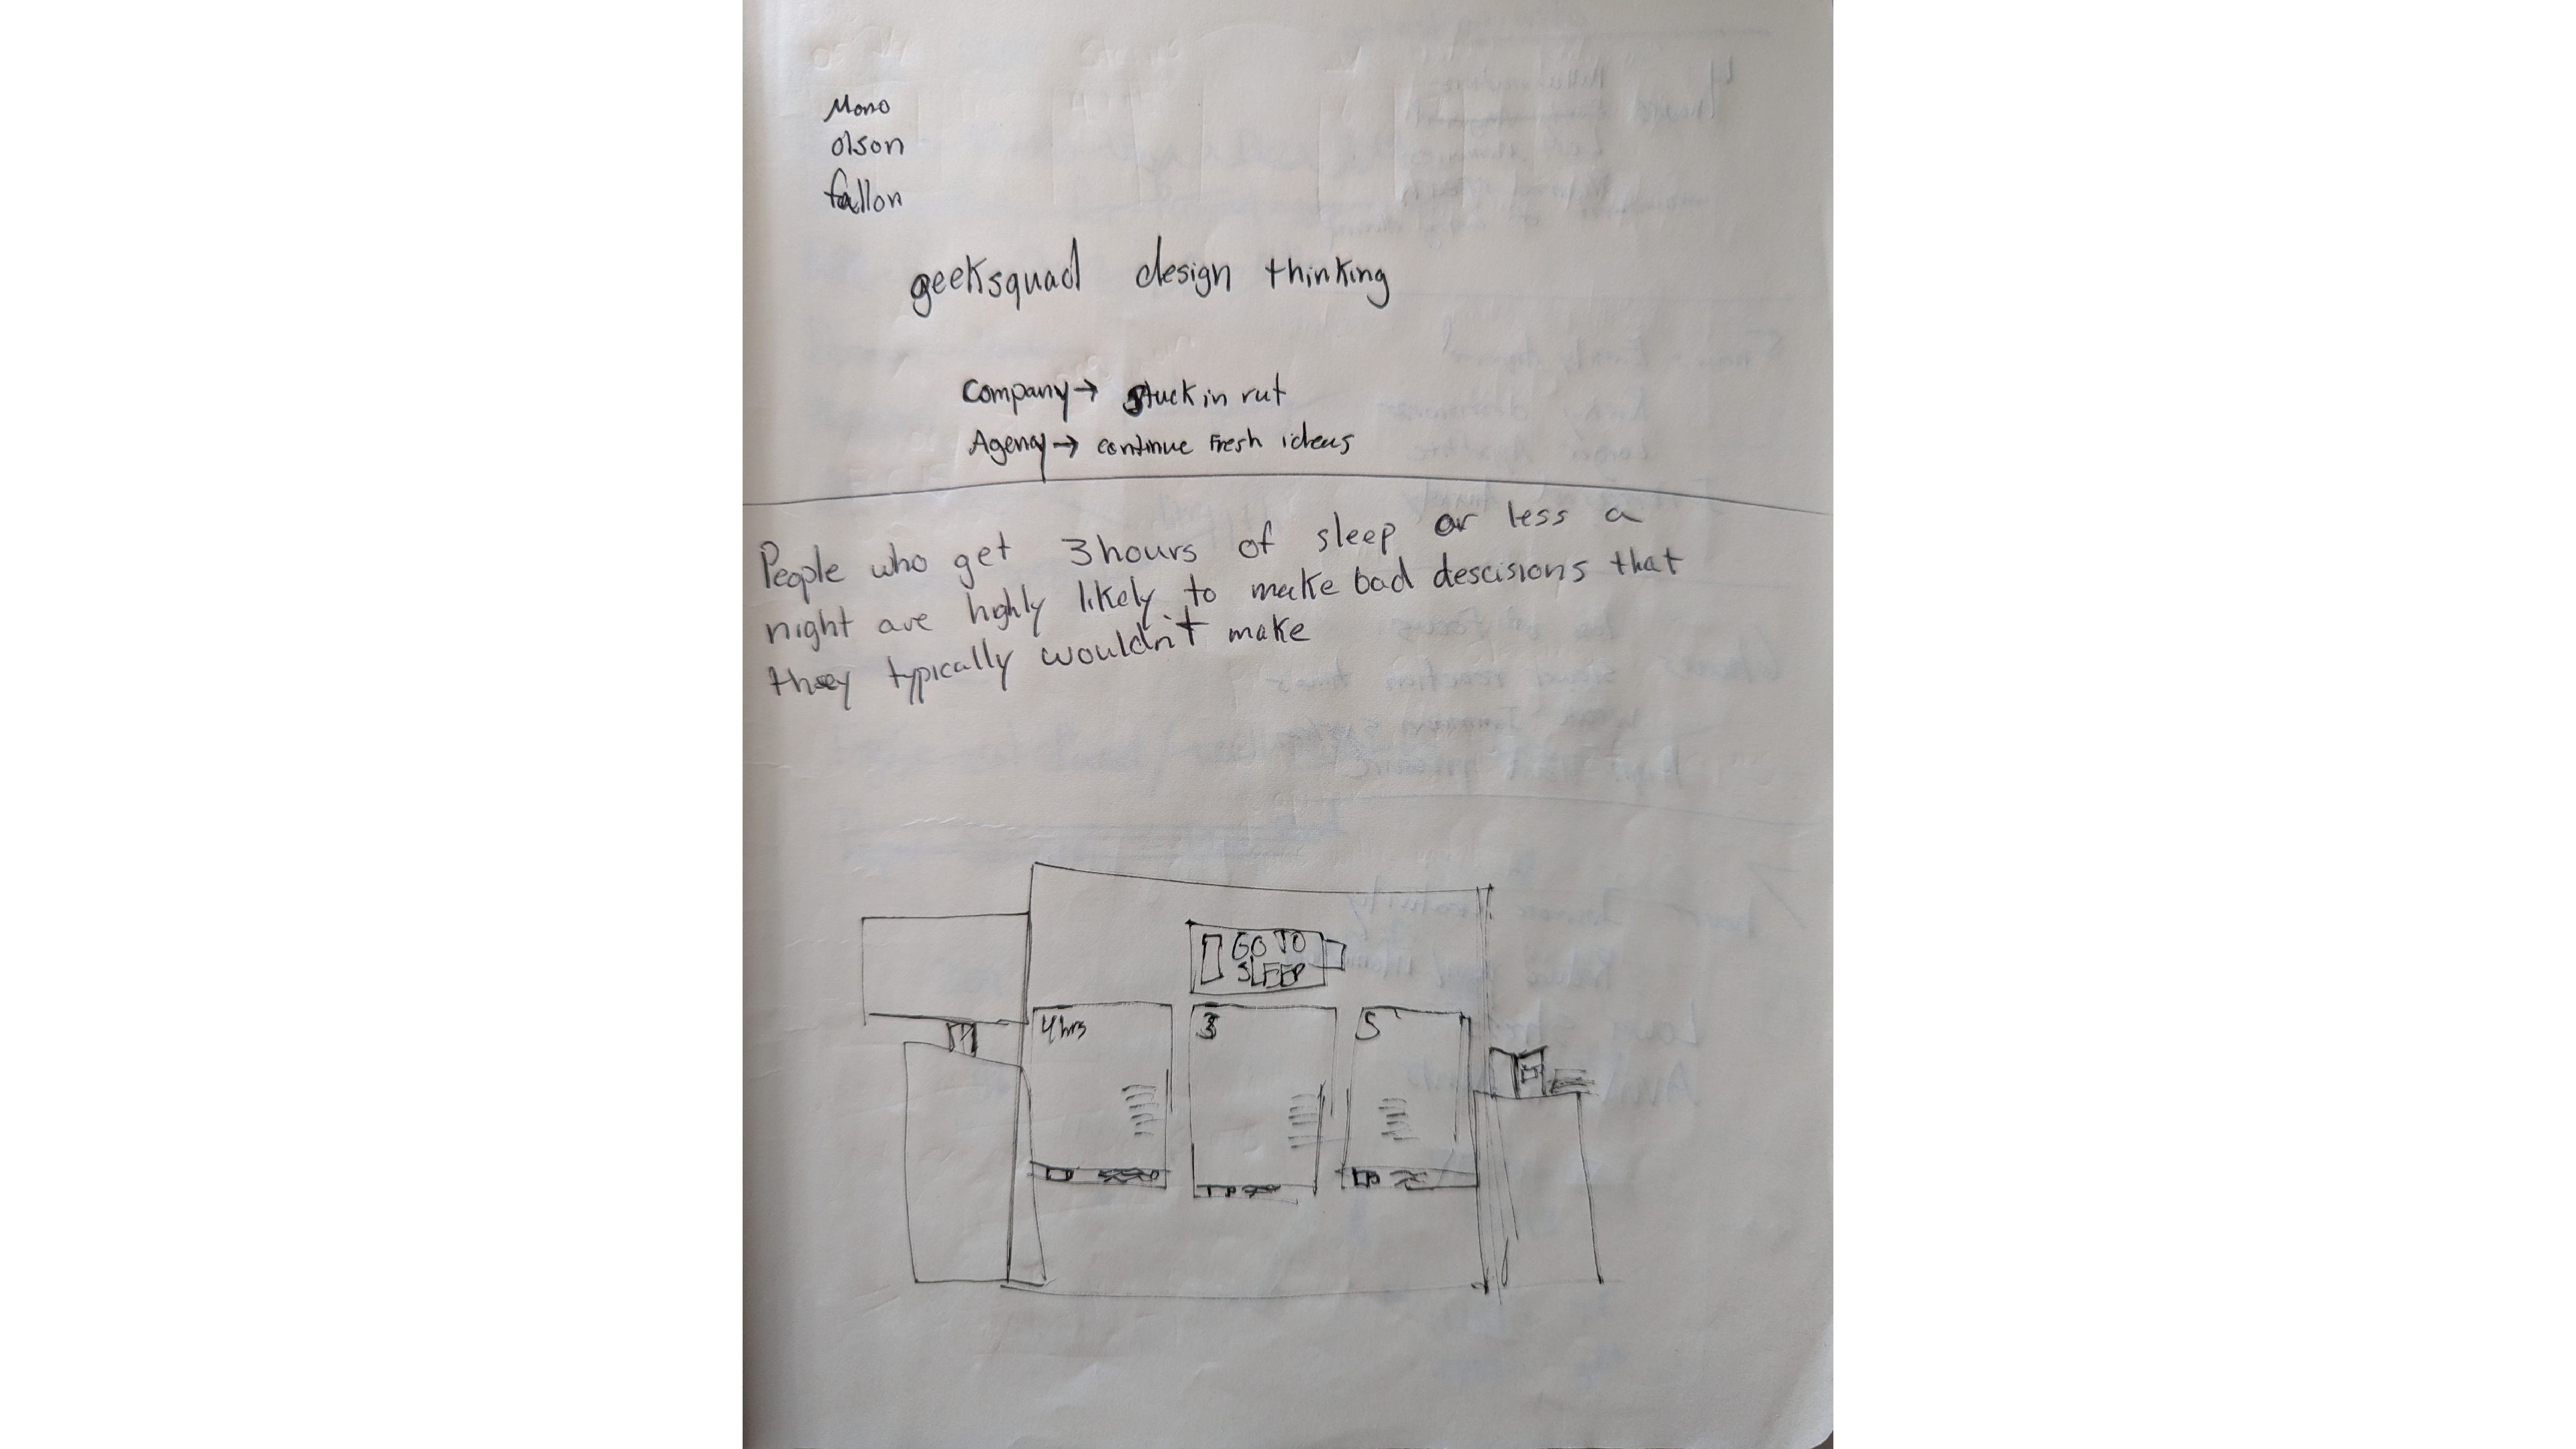 Mono
olson
fallon
geeksquad design thinking
Company → Stuck in rut
Agency → continue Fresh ideas
People who get 3 hours of sleep or less a
night are highly likely to make bad descisions that
they typically wouldn't make
GO TO
SLEEP
4 hrs
3
5